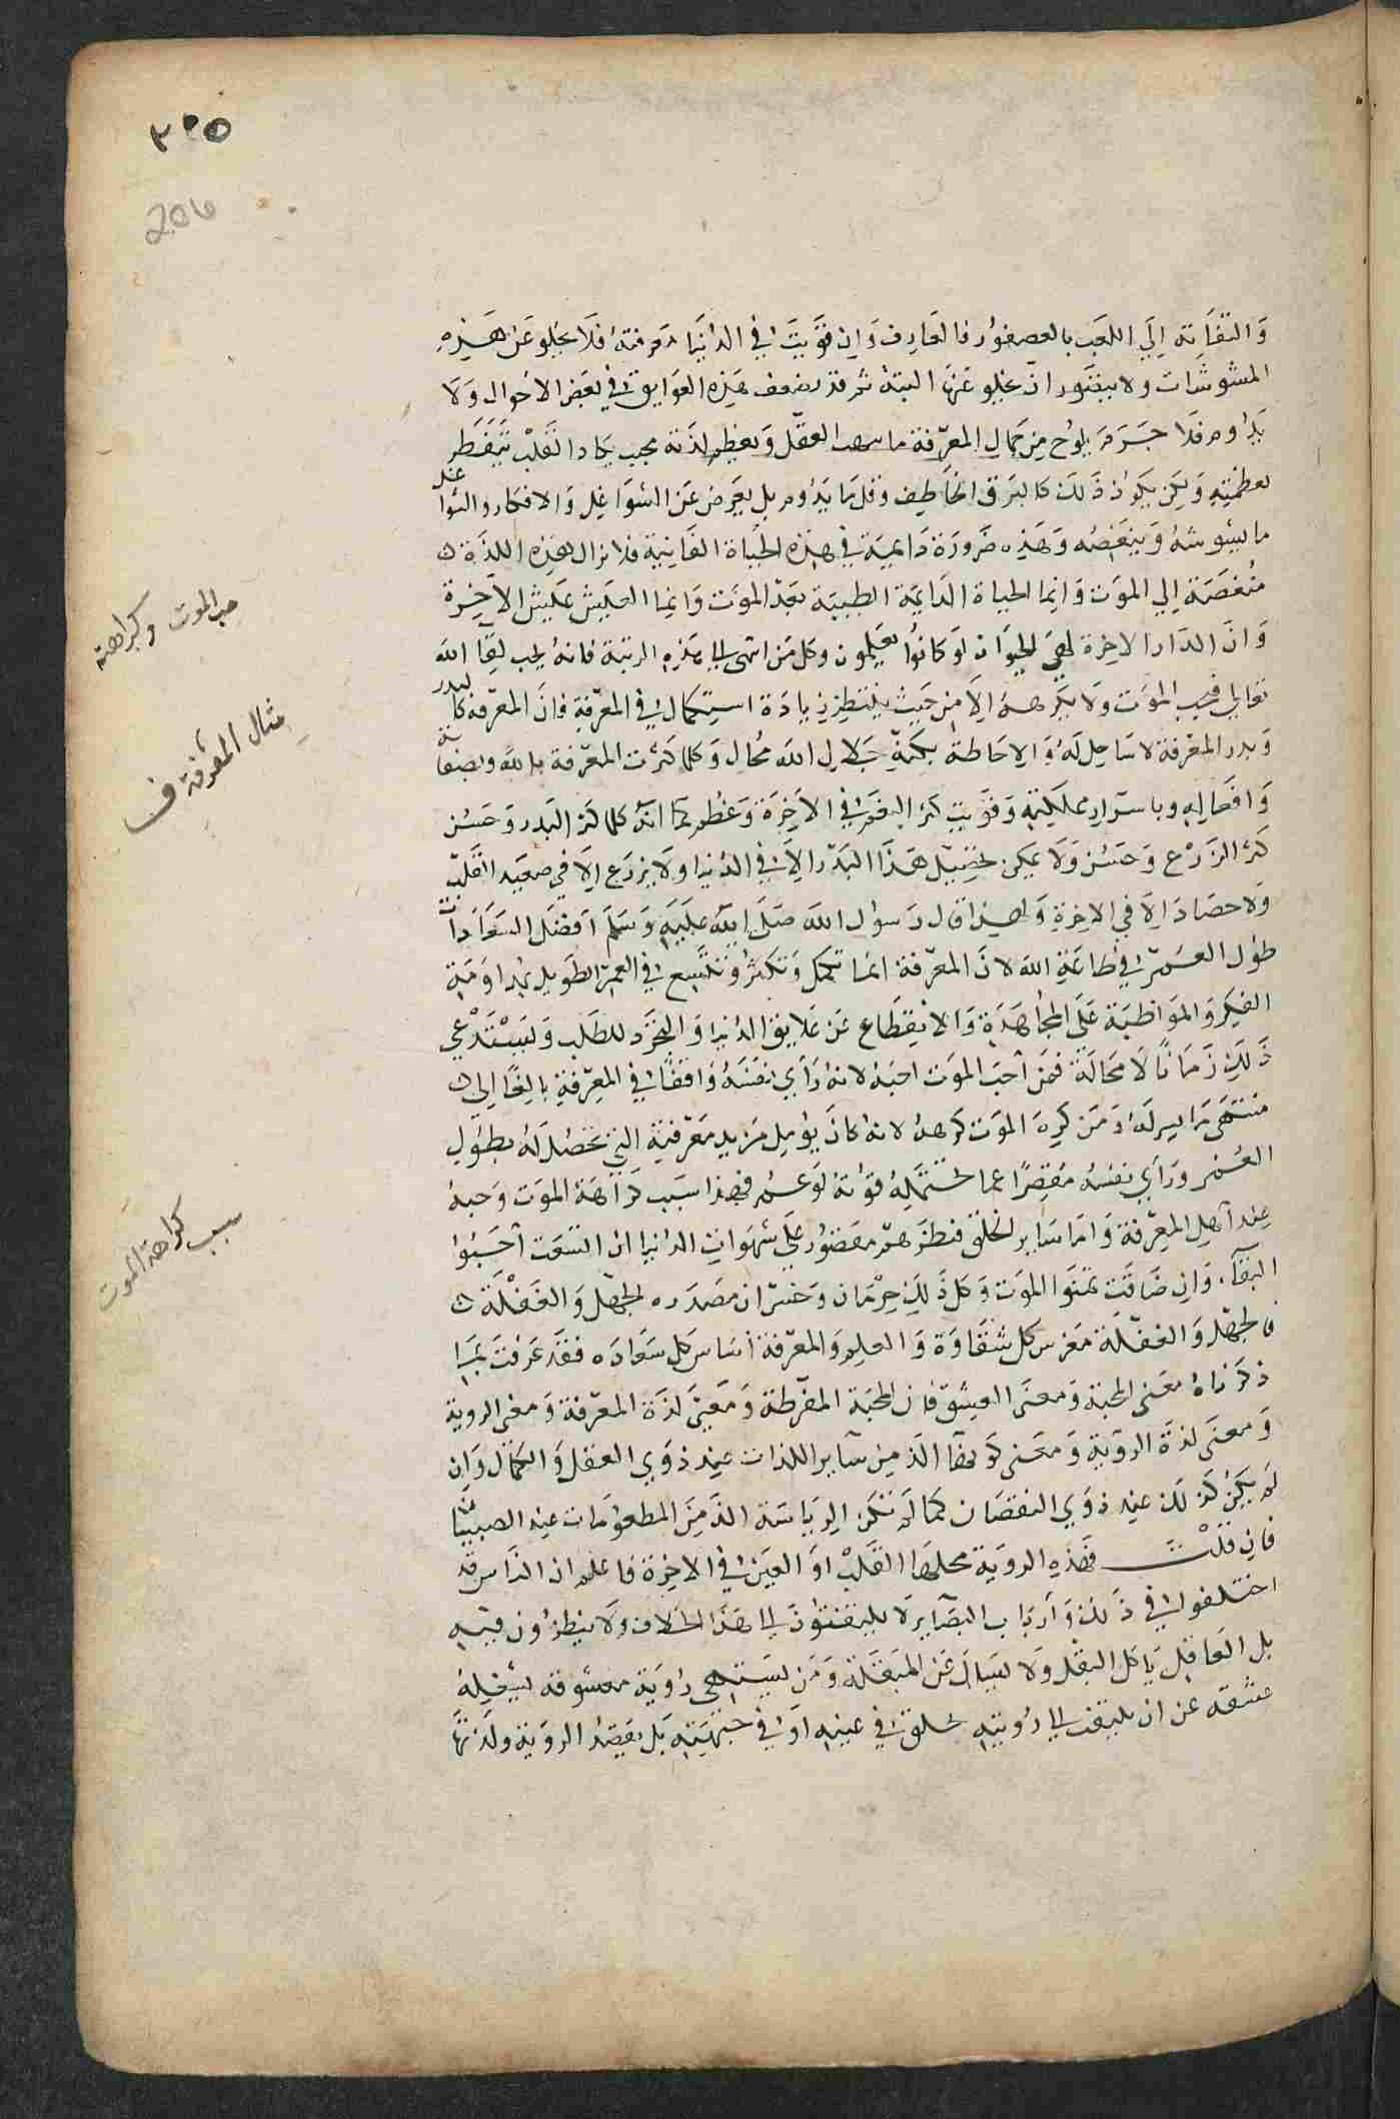 ٢٠٥
206
والتفاته إلى اللعب بالعصفور فالعارف وان قويت في الدنيا معرفته فلا يخلو عن هذه
المشوشات ولا يتصور ان يخلو عنها البتة ثم قد تضعف هذه العوايق في بعض الاحوال ولا
يدوم فلا جرم يلوح من جمال المعرفة ما يبهت العقل وتعظم لذته بحيث يكاد القلب يتفطر
لعظمته ولكن يكون ذلك كالبرق الخاطف وقل ما يدوم بل يعرض عن الشواغل والافكار والشواغل
ما يشوشه وينغصه وهذه ضرورة دايمة في هذه الحياة الفانية فلا تزال هذه اللذة
منغصة إلى الموت وانما الحياة الدايمة الطيبة بعد الموت وانما العيش عيش الاخرة
وان الدار الاخرة لهي الحيوان لو كانوا يعلمون وكل من انتهى الى هذه الرتبة فانه يحب لقا الله
تعالى فيحب الموت ولا يكرهه الا من حيث ينتظر زيادة استكمال في المعرفة فان المعرفة كالبدر
وبدر المعرفة لا ساحل له والاحاطة بكنه جلال الله محال وكلما كثرت المعرفة بالله وبصفاته
وافعاله وباسرار مملكته وقويت كثر النعيم في الاخرة وعظم كما انه كلما كثر البدر وحسن
كثر الزرع وحسن ولا يمكن تحصيل هذا البدر الا في الدنيا ولا يزرع الا في صعيد القلب
ولا حصاد الا في الاخرة ولهذا قال رسول الله صلى الله عليه وسلم افضل السعادات
طول العمر في طاعة الله لان المعرفة انما تكمل وتكثر وتتسع في العمر الطويل بمداومة
الفكر والمواظبة على المجاهدة والانقطاع عن علايق الدنيا والتجرد للطلب ويستدعي
ذلك زمانا لا محالة فمن أحب الموت احبه لانه رأي نفسه واقفا في المعرفة بالغا الى
منتهى ما يسر له ومن كره الموت كرهه لانه كان يؤمل مزيد معرفة التي تحصل له بطول
العمر ورأي نفسه مقصرا عما تحتمله قوته لو عمر فهذا سبب كراهة الموت وحبه
عند أهل المعرفة واما ساير الخلق فنظرهم مقصور على شهوات الدنيا ان اتسعت أحبوا
البقآء وان ضاقت تمنوا الموت وكل ذلك حرمان وخسران مصدره الجهل والغفلة
فالجهل والغفلة مغرس كل شقاوة والعلم والمعرفة أساس كل سعادة فقد عرفت بما
ذكرناه معنى المحبة ومعنى العشق فان المحبة المفرطة ومعنى لذة المعرفة ومعنى الروية
ومعنى لذة الروية ومعنى كونها الذ من سآير اللذات عند ذوي العقل والكمال وان
لم يكن كذلك عند ذوي النقصان كما لم تكن الرياسة الذ من المطعومات عند الصبيان
فان قلت فهذه الروية محلها القلب او العين في الاخرة فاعلم ان الناس قد
اختلفوا في ذلك وأرباب البصآير لا يلتفتون الى هذا الخلاف ولا ينظرون فيه
بل العاقل يأكل البقل ولا يسأل عن المبقلة ومن يشتهي رؤية معشوقه يشغله
عشقه عن ان يلتفت الى رؤيته تخلق في عينه او في جبهته بل يقصد الروية ولذتها
حب الموت وكراهته
مثال المعرفة
سبب كراهة الموت